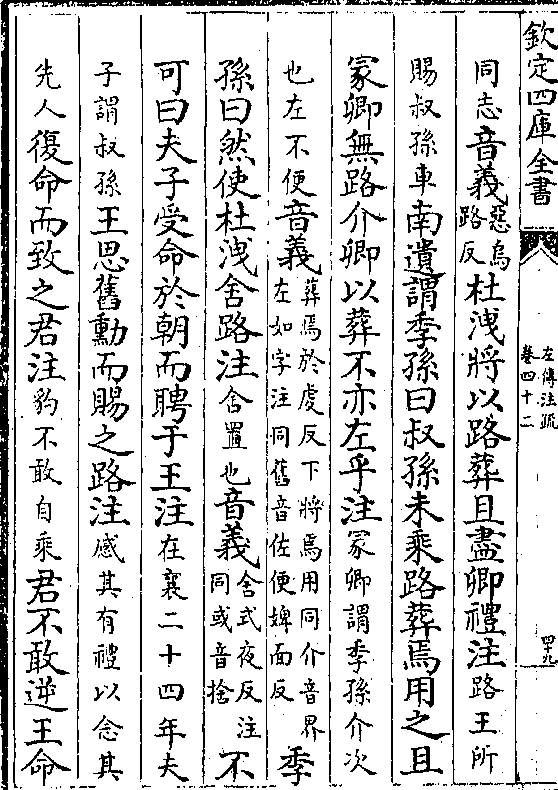 欽定四庫全書
左傳注疏
卷四十二
四十九
同志音義惡烏
路反杜洩將以路葬且盡卿禮注路王所
賜叔孫車南遺謂季孫曰叔孫未乘路葬焉用之且
冢卿無路介卿以葬不亦左乎注冢卿謂季孫介次
也左不便音義葬焉於虔反下將焉用同介音界
左如字注同舊音佐便婢面反季
孫曰然使杜洩舍路注舍置也音義舍式夜反注
同或音捨不
可曰夫子受命於朝而聘于王注在襄二十四年夫
子謂叔孫王思舊勳而賜之路注感其有禮以念其
先人復命而致之君注豹不敢自乘君不敢逆王命